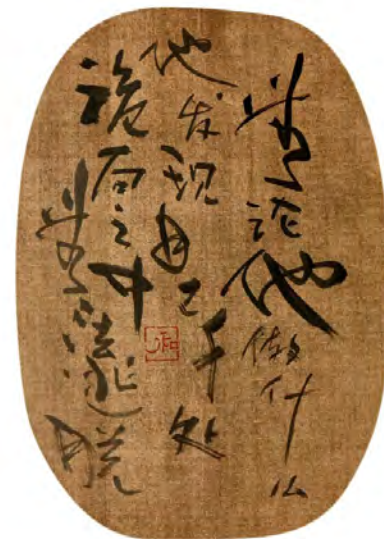 无论他做什么
他发现自己身处
诡局之中
无法逃脱